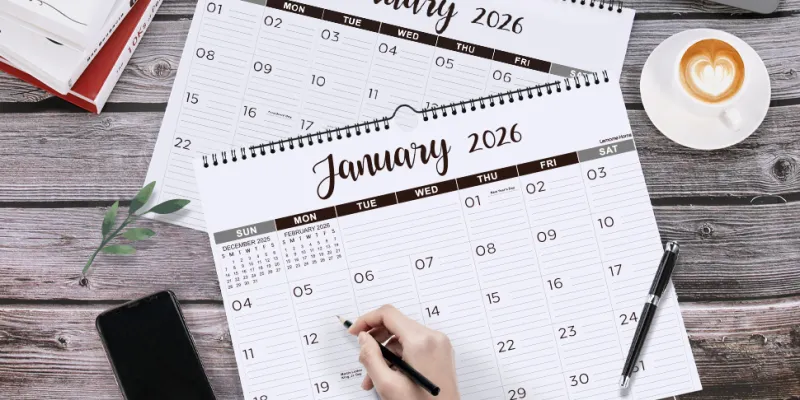 January 2026
MON TUE WED THU FRI
01 02 03 04 05 06
08 09 10 11
15 16
22
January 2026
Lemome Home
SUN MON TUE WED THU FRI SAT
DECEMBER 2025 FEBRUARY 2026
S M T W T F S S M T W T F S
01 New Year's Day 02 03
04 05 06 07 08 09 10
11 12 14 15 16 17
18 19 22 23 24
29 30 31